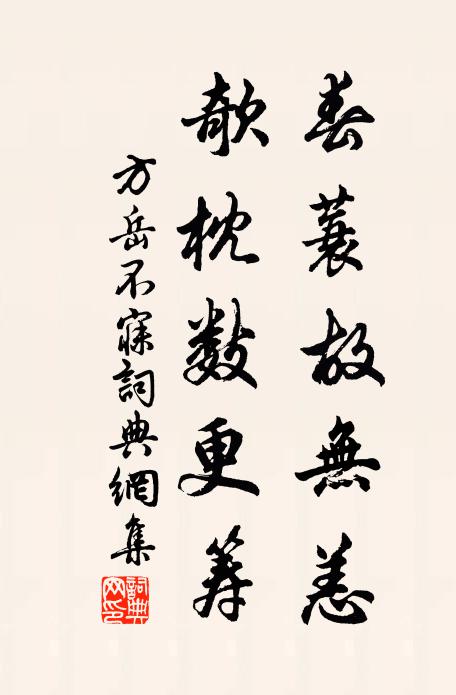 春蓑故無恙
欹枕數更筹
方岳不寐詞典網集
詞典网印